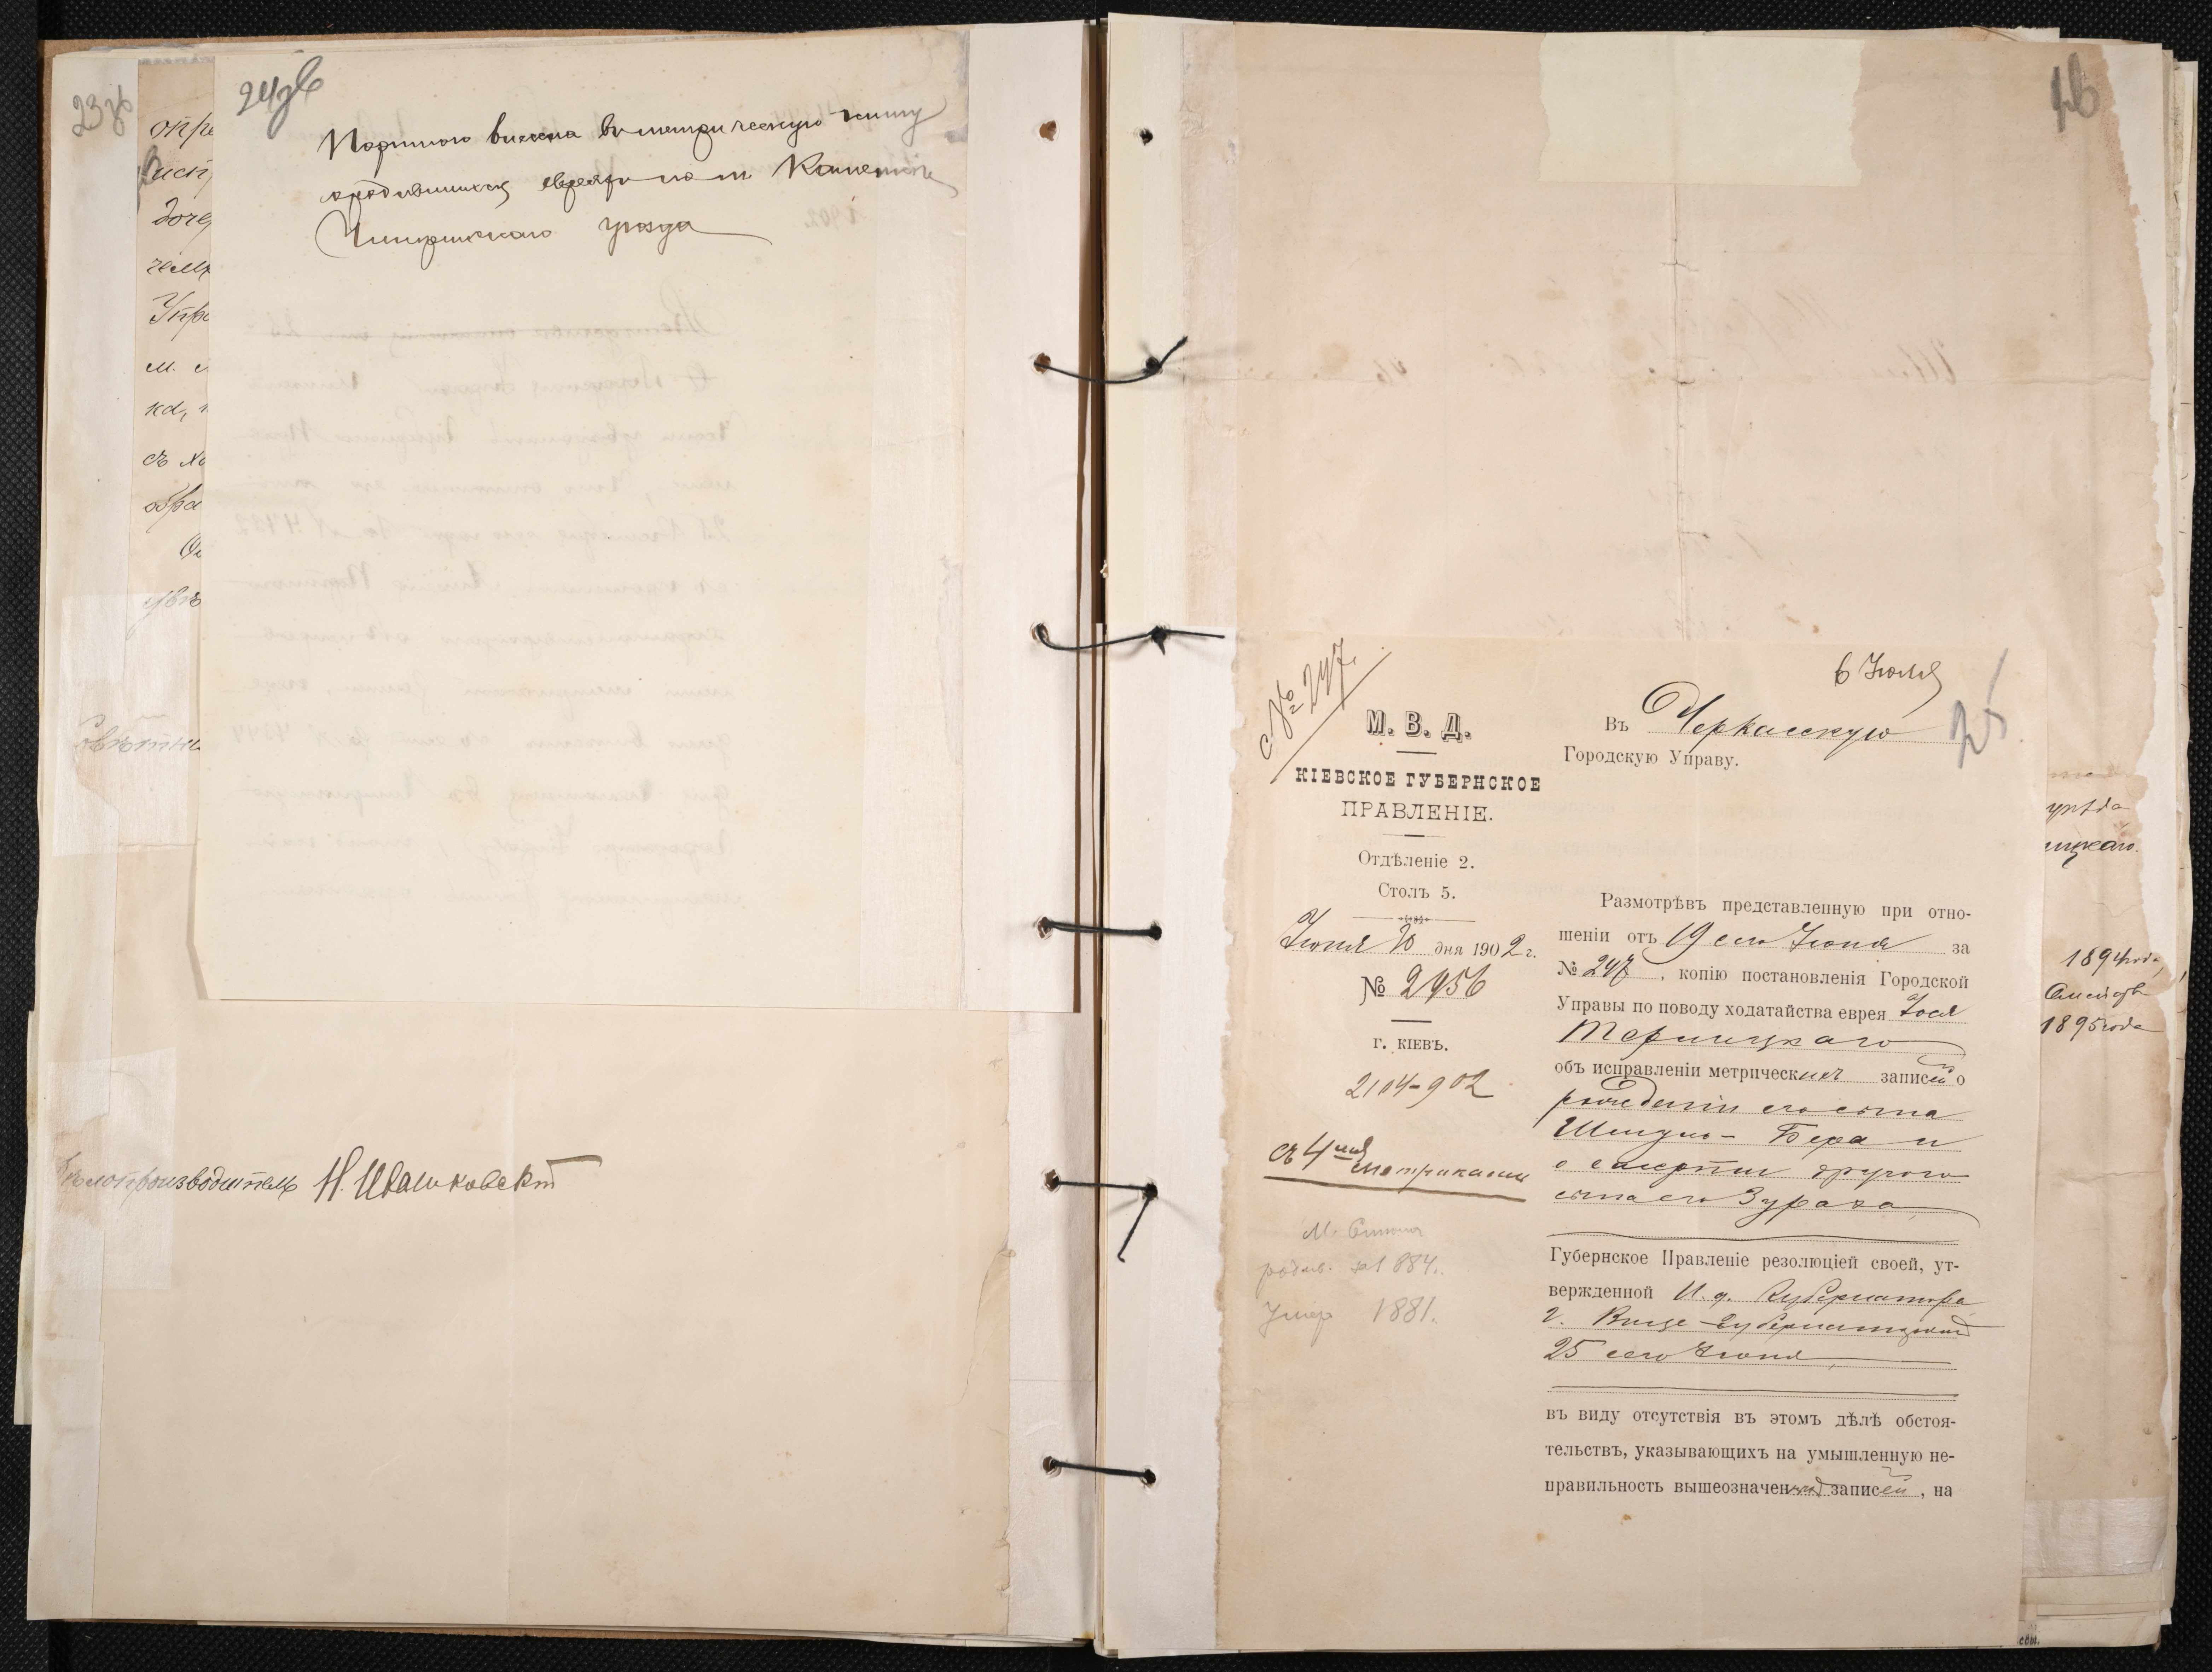 23зв
24зв
опре
дочер
чемъ
Упра
м. с.
ка, н
съ хо
обра
Портного внесена въ метрическую книгу
о родившихся евреяхъ по м. Каменкѣ
Чигиринскаго уѣзда
Дѣлопроизводитель Н. Ивашковскій
26
25
с № 247.
6 Іюля
М. В. Д.
КІЕВСКОЕ ГУБЕРНСКОЕ
ПРАВЛЕНІЕ.
Отдѣленіе 2.
Столъ 5.
Іюня 30 дня 1902 г.
№ 2956
г. КІЕВЪ.
2104-902
съ 4мя метриками
родив. 1884.
Умер 1881.
Въ Черкасскую
Городскую Управу.
Размотрѣвъ представленную при отно-
шеніи отъ 19 сего Іюня за
№ 247, копію постановленія Городской
Управы по поводу ходатайства еврея Іося
Терницкаго
объ исправленіи метрическихъ записей о
рожденіи его сына
Шмуль-Бера и
о смерти другого
сына его Зураха,
Губернское Правленіе резолюціей своей, ут-
вержденной И. д. Губернатора,
г. Вице-Губернаторомъ
25 сего Іюня,
въ виду отсутствія въ этомъ дѣлѣ обстоя-
тельствъ, указывающихъ на умышленную не-
правильность вышеозначенной записей, на
уѣзда
ицкаго.
1894 года,
1895 года